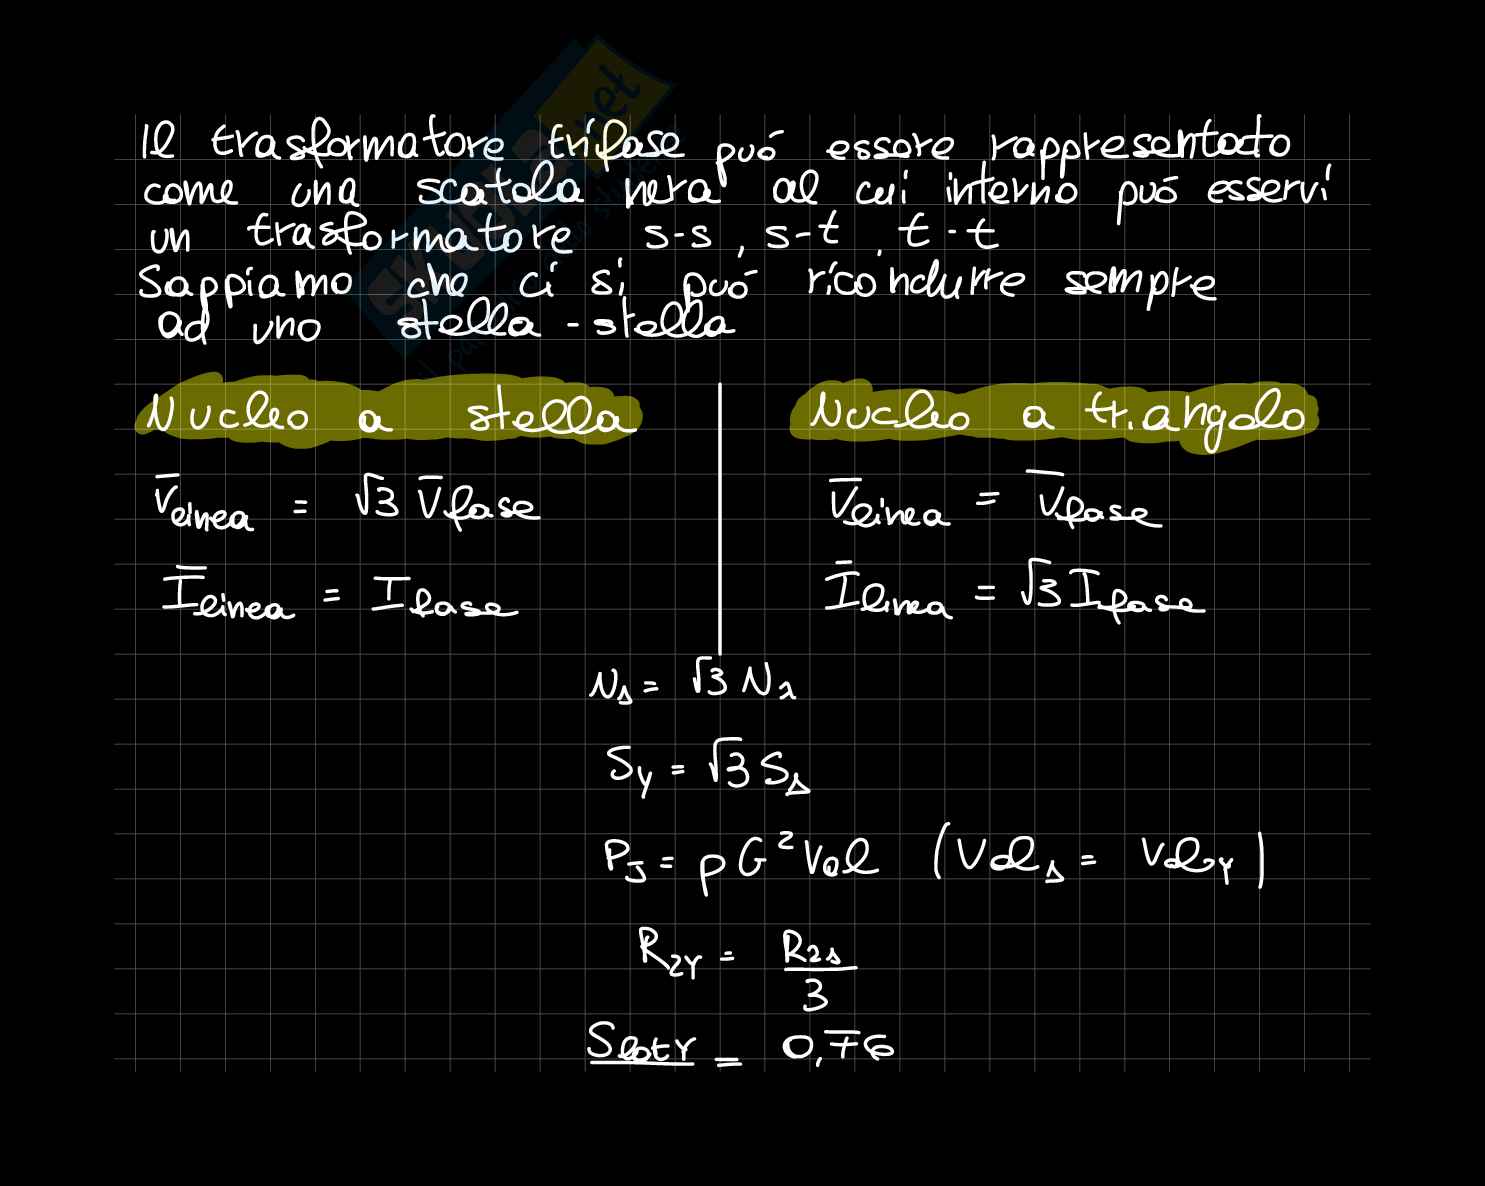 Il trasformatore trifase può essere rappresentato
come una scatola nera al cui interno può esservi
un trasformatore s-s, s-t, t-t
Sappiamo che ci si può ricondurre sempre
ad uno stella-stella
Nucleo a stella
V̅linea = √3 V̅fase
I̅linea = Ifase
Nucleo a triangolo
V̅linea = V̅fase
I̅linea = √3 Ifase
NΔ = √3 Nλ
SY = √3 SΔ
PJ = ρG²Vol (VolΔ = VolY)
R2Y = R2Δ
3
= 0,76